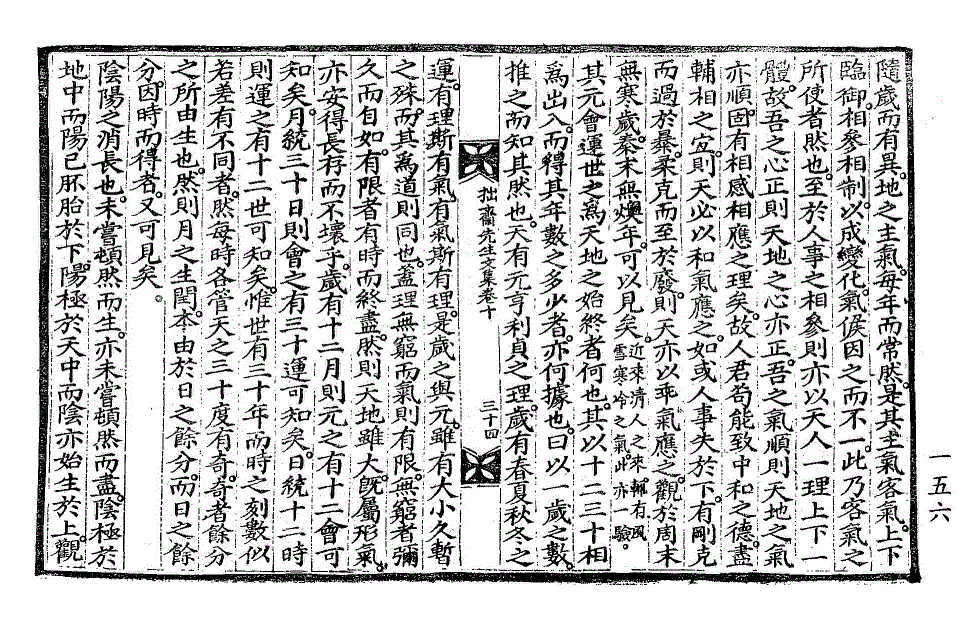 隨歲而有異。地之主氣。每年而常然。是其主氣客氣。上下
臨御。相參相制。以成變化氣候。因之而不一。此乃客氣之
所使者然也。至於人事之相參則亦以天人一理上下一
體。故吾之心正則天地之心亦正。吾之氣順則天地之氣
亦順。固有相感相應之理矣。故人君苟能致中和之德。盡
輔相之宜。則天必以和氣應之。如或人事失於下。有剛克
而過於暴。柔克而至於廢。則天亦以乖氣應之。觀於周末
無寒歲。秦末無燠年。可以見矣。近來清人之來。輒有風雪寒冷之氣。此亦一驗。
其元會運世之爲天地之始終者何也。其以十二三十相
爲出入。而得其年數之多少者。亦何據也。曰以一歲之數。
推之而知其然也。天有元亨利貞之理。歲有春夏秋冬之
拙齋先生文集卷十
三十四
運。有理斯有氣。有氣斯有理。是歲之與元。雖有大小久暫
之殊。而其爲道則同也。盖理無窮而氣則有限。無窮者彌
久而自如。有限者有時而終盡。然則天地雖大。旣屬形氣。
亦安得長存而不壞乎。歲有十二月則元之有十二會可
知矣。月統三十日則會之有三十運可知矣。日統十二時
則運之有十二世可知矣。惟世有三十年而時之刻數似
若差有不同者。然每時各管天之三十度有奇。奇者餘分
之所由生也。然則月之生閏。本由於日之餘分。而日之餘
分。因時而得者。又可見矣。
陰陽之消長也。未嘗頓然而生。亦未嘗頓然而盡。陰極於
地中。而陽已胚胎於下。陽極於天中而陰亦始生於上。觀
一五六